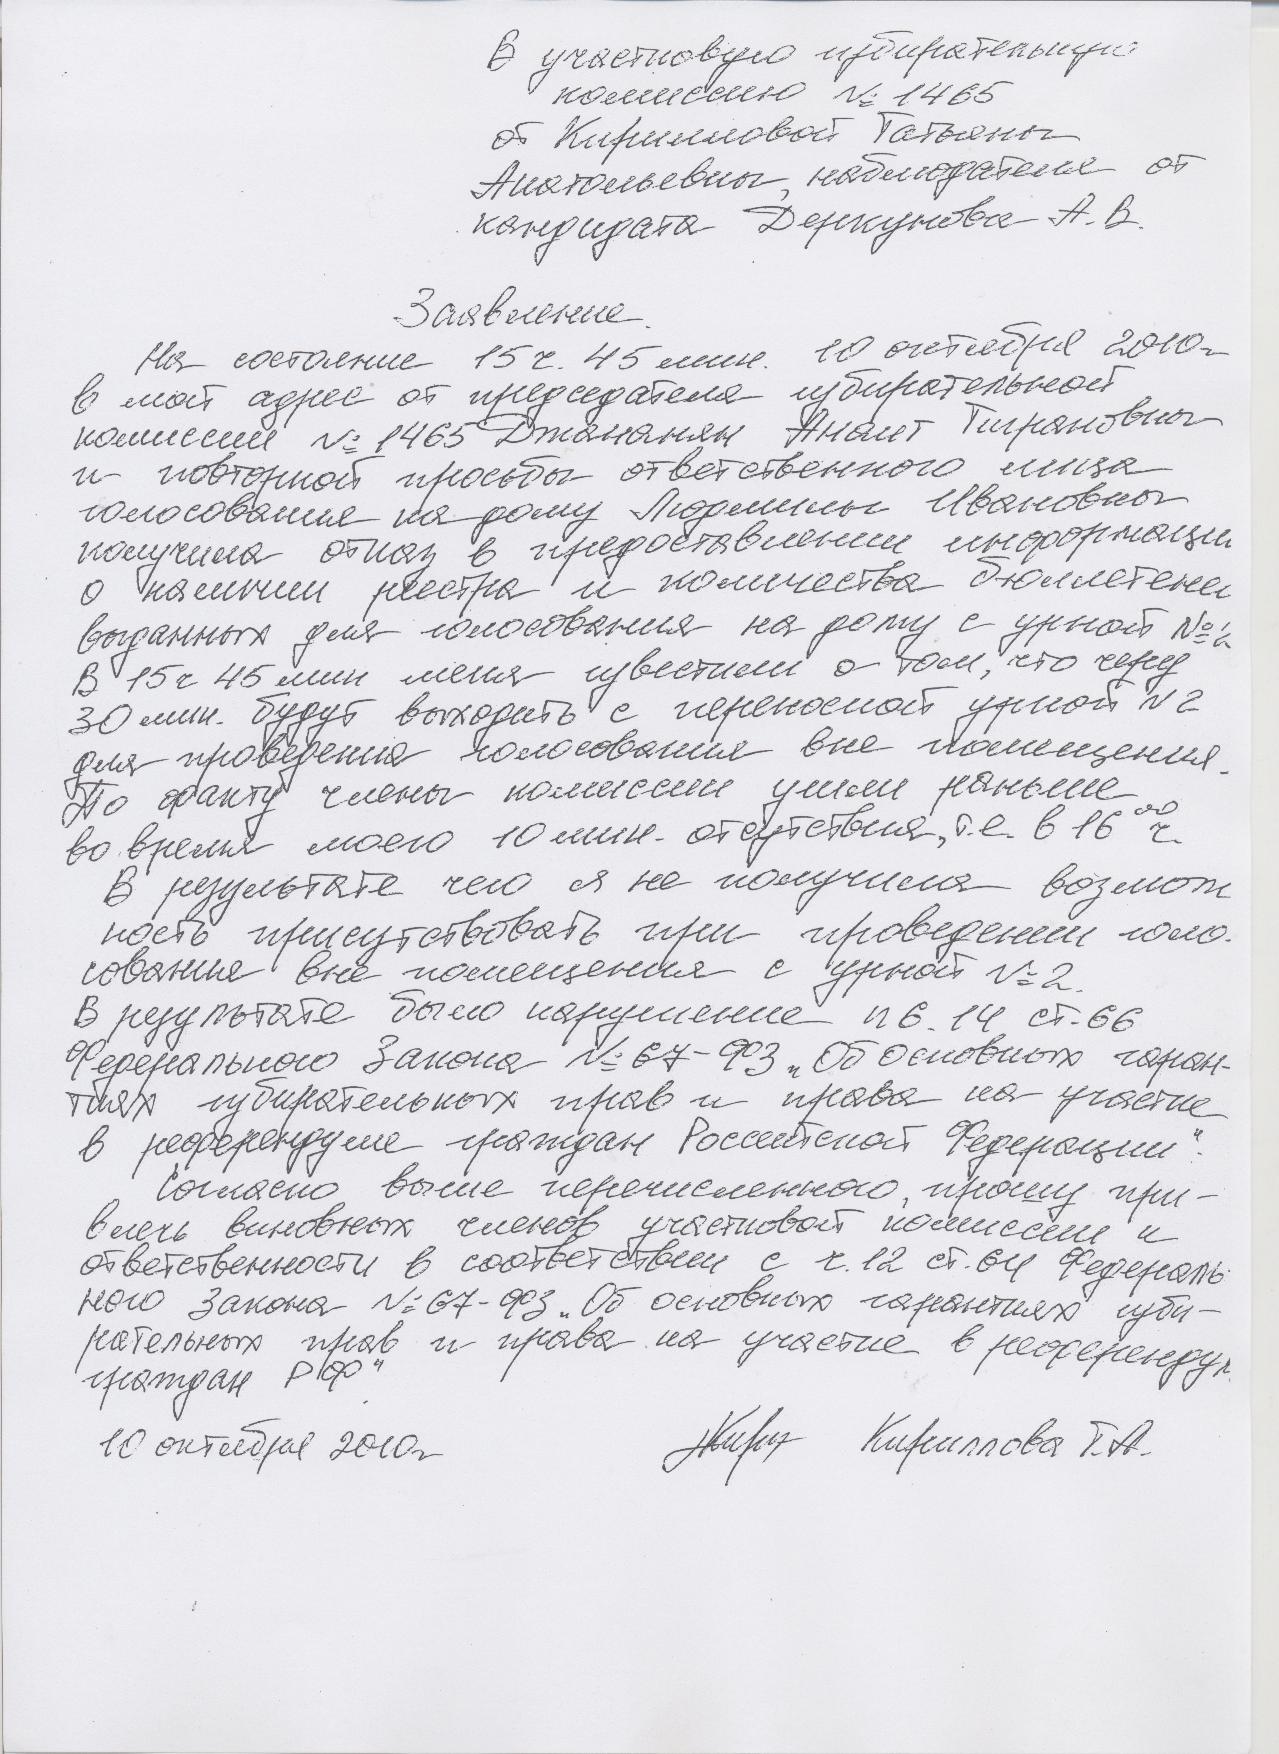 В участковую избирательную
комиссию № 1465
от Кирилловой Татьяны
Анатольевны, наблюдателя от
кандидата Деркунова А.В.
Заявление.
На состояние 15 ч. 45 мин. 10 октября 2010г
в мой адрес от председателя избирательной
комиссии № 1465 Джананян Анаит Тиграновны
и повторной просьбы ответственного лица
голосования на дому Людмилы Ивановны
получила отказ в предоставлении информации
о наличии реестра и количества бюллетеней
выданных для голосования на дому с урной №
В 15 ч 45 мин меня известили о том, что через
30 мин. будут выходить с переносной урной N 2
для проведения голосования вне помещения.
По факту члены комиссии ушли раньше
во время моего 10 мин. отсутствия, т.е. в 16 00 ч.
В результате чего я не получила возмож
ность присутствовать при проведении голо-
сования вне помещения с урной № 2.
В результате было нарушение п 6. 14 ст. 66
Федерального Закона № 67-ФЗ „Об Основных гаран-
тиях избирательных прав и права на участие
в референдуме граждан Российской Федерации".
Согласно выше перечисленного, прошу при-
влечь виновных членов участковой комиссии к
ответственности в соответствии с ч. 12 ст. 64 Федераль-
ного Закона № 67-ФЗ „Об основных гарантиях изби-
рательных прав и права на участие в референдум
граждан РФ"
10 октября 2010г Кириллова Т.А.